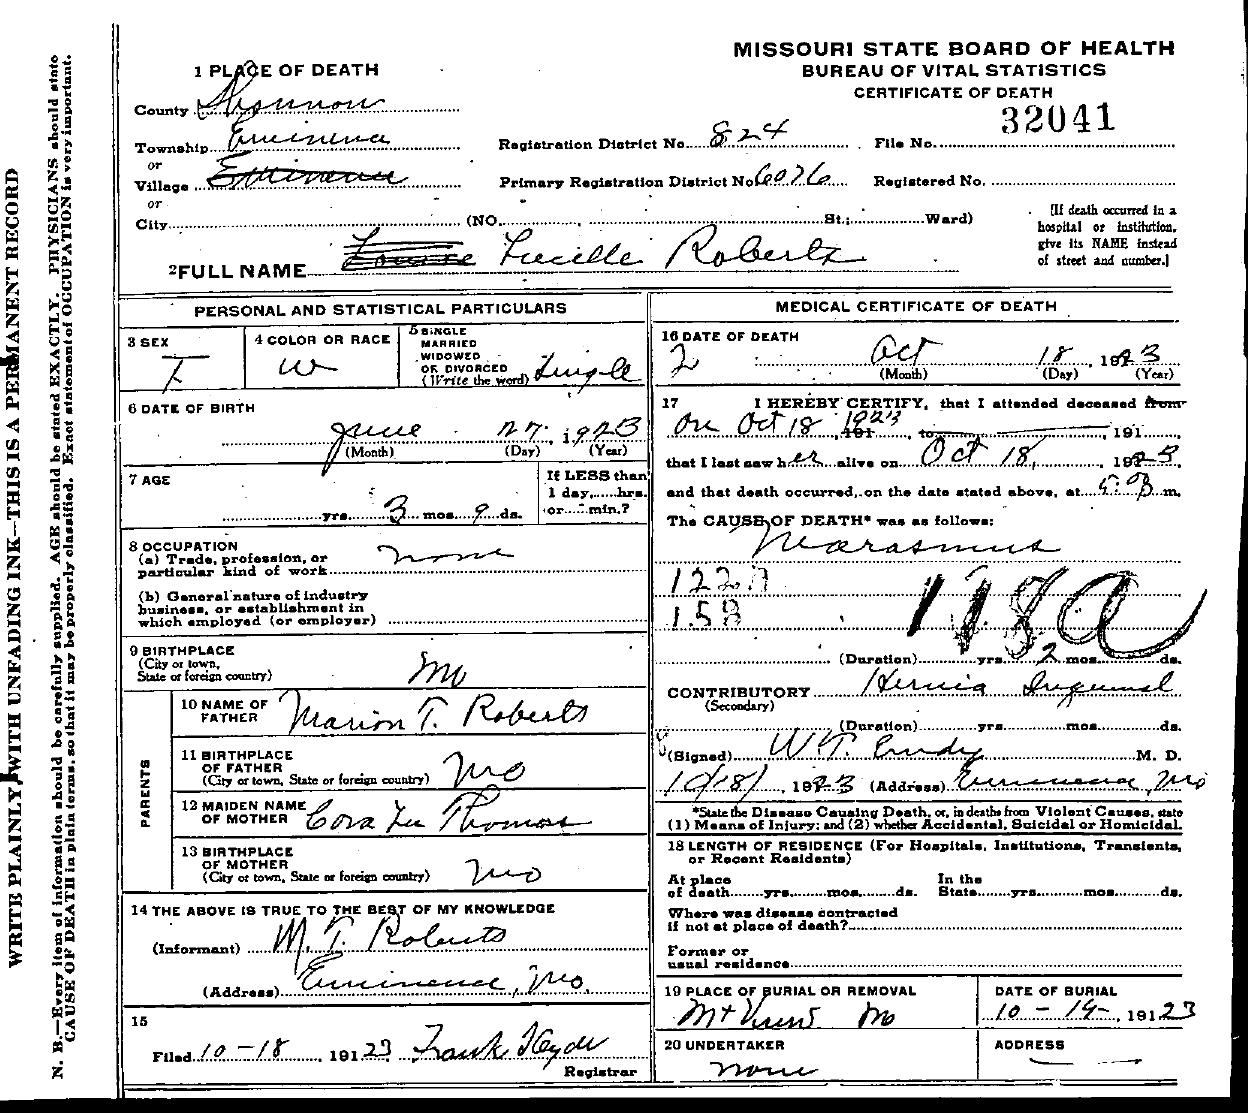 MISSOURI STATE BOARD OF HEALTH
BUREAU OF VITAL STATISTICS
CERTIFICATE OF DEATH
32041
WRITE PLAINLY, WITH UNFADING INK—THIS IS A PERMANENT RECORD
N. B.—Every item of information should be carefully supplied. AGE should be stated EXACTLY. PHYSICIANS should state
CAUSE OF DEATH in plain terms, so that it may be properly classified. Exact statement of OCCUPATION is very important.
1 PLACE OF DEATH
County Shannon
Township Eminence
or
Village Eminence
or
City (NO. St.; Ward)
Registration District No. 824 File No.
Primary Registration District No 6076 Registered No.
[If death occurred in a
hospital or institution,
give its NAME instead
of street and number.]
2 FULL NAME Lucille Roberts
PERSONAL AND STATISTICAL PARTICULARS
3 SEX
F
4 COLOR OR RACE
W
5 SINGLE
MARRIED
WIDOWED
OR DIVORCED
(Write the word) Single
6 DATE OF BIRTH
June 27, 1923
(Month) (Day) (Year)
7 AGE
yrs. 3 mos. 9 ds.
If LESS than
1 day,......hrs.
or......min.?
8 OCCUPATION
(a) Trade, profession, or
particular kind of work none
(b) General nature of industry
business, or establishment in
which employed (or employer)
9 BIRTHPLACE
(City or town,
State or foreign country) Mo
PARENTS
10 NAME OF
FATHER Marion T. Roberts
11 BIRTHPLACE
OF FATHER
(City or town, State or foreign country) Mo
12 MAIDEN NAME
OF MOTHER Cora Lee Thomas
13 BIRTHPLACE
OF MOTHER
(City or town, State or foreign country) Mo
14 THE ABOVE IS TRUE TO THE BEST OF MY KNOWLEDGE
(Informant) M. T. Roberts
(Address) Eminence, Mo.
15
Filed 10-18, 19123 Frank Hyde
Registrar
MEDICAL CERTIFICATE OF DEATH
16 DATE OF DEATH
2 Oct 18, 1923
(Month) (Day) (Year)
17 I HEREBY CERTIFY, that I attended deceased from
on Oct 18 1923 191, to, 191
that I last saw her alive on Oct 18, 1923,
and that death occurred, on the date stated above, at m.
The CAUSE OF DEATH* was as follows:
Marasmus
122A
15B
118a
(Duration) yrs. 2 mos. ds.
CONTRIBUTORY Hernia Inguinal
(Secondary)
(Duration) yrs. mos. ds.
(Signed) W.T. Eudy M. D.
10/18/, 1923 (Address) Eminence, Mo
*State the Disease Causing Death, or, in deaths from Violent Causes, state
(1) Means of Injury; and (2) whether Accidental, Suicidal or Homicidal.
18 LENGTH OF RESIDENCE (For Hospitals, Institutions, Transients,
or Recent Residents)
At place
of death......yrs......mos......ds.
In the
State......yrs......mos......ds.
Where was disease contracted
if not at place of death?
Former or
usual residence
19 PLACE OF BURIAL OR REMOVAL
Mt Mo
DATE OF BURIAL
10-19-, 19123
20 UNDERTAKER
none
ADDRESS